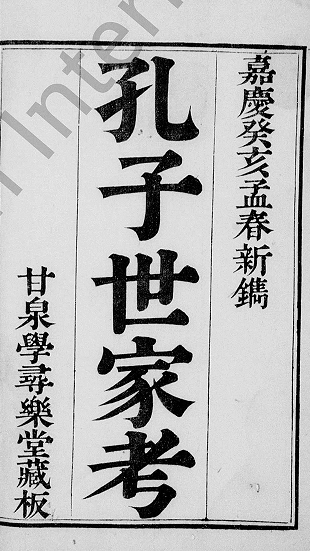 嘉慶癸亥孟春新鐫
孔子世家考
甘泉學尋樂堂藏板